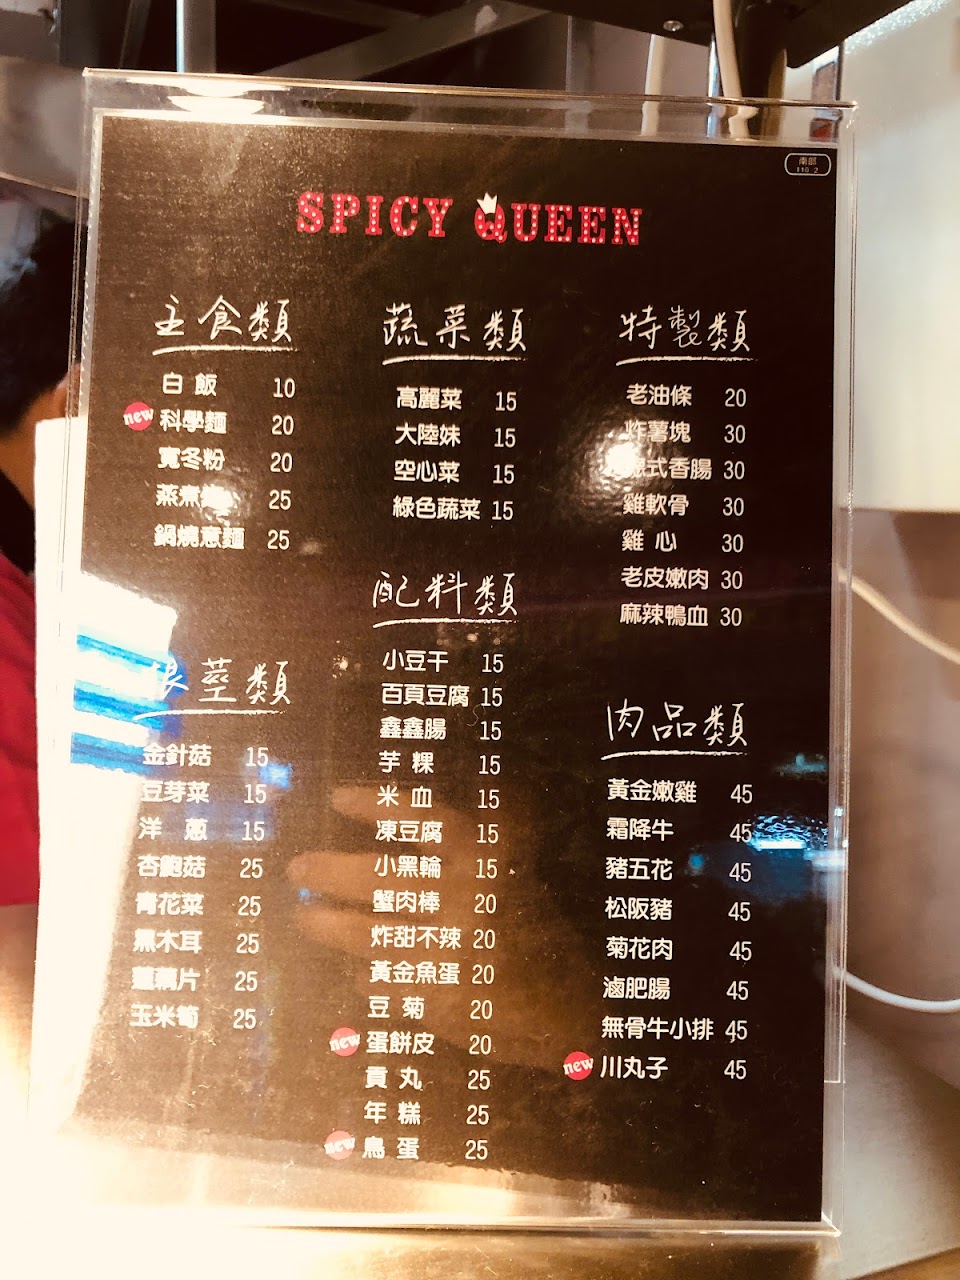 南部
110 2
SPICY QUEEN
主食類
白飯 10
new 科學麵 20
寬冬粉 20
蒸煮 25
鍋燒意麵 25
根莖類
金針菇 15
豆芽菜 15
洋蔥 15
杏鮑菇 25
青花菜 25
黑木耳 25
蓮藕片 25
玉米筍 25
蔬菜類
高麗菜 15
大陸妹 15
空心菜 15
綠色蔬菜 15
配料類
小豆干 15
百頁豆腐 15
鑫鑫腸 15
芋粿 15
米血 15
凍豆腐 15
小黑輪 15
蟹肉棒 20
炸甜不辣 20
黃金魚蛋 20
豆菊 20
new 蛋餅皮 20
貢丸 25
年糕 25
new 鳥蛋 25
特製類
老油條 20
炸薯塊 30
德式香腸 30
雞軟骨 30
雞心 30
老皮嫩肉 30
麻辣鴨血 30
肉品類
黃金嫩雞 45
霜降牛 45
豬五花 45
松阪豬 45
菊花肉 45
滷肥腸 45
無骨牛小排 45
new 川丸子 45